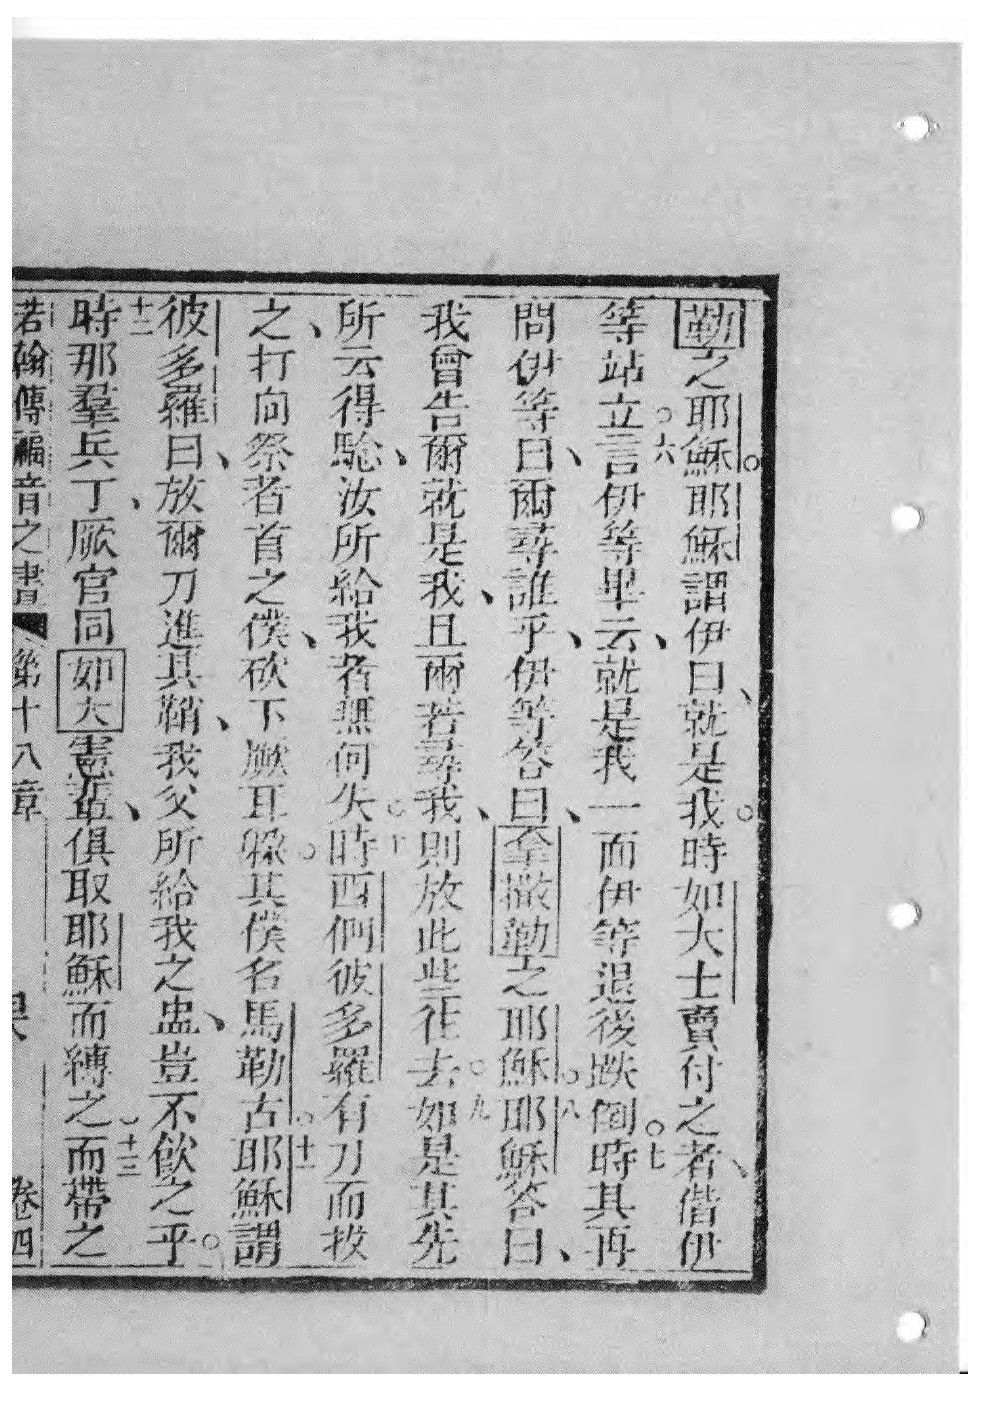 勒之耶穌。耶穌謂伊曰、就是我。時如大士賣付之者、偕伊
等站立。六言伊等畢云、就是我一而伊等退後跌倒。七時其再
問伊等曰、爾尋誰乎、伊等答曰、拿撒勒之耶穌。八耶穌答曰、
我曾告爾就是我、且爾若尋我、則放此些往去。九如是其先
所云得騐、汝所給我者無何失。十時西們彼多羅有刀而拔
之、打向祭者首之僕、砍下厥耳躲。其僕名馬勒古。十一耶穌謂
彼多羅曰、放爾刀進其鞘、我父所給我之盅、豈不飲之乎。
十二時那羣兵丁、厥官同如大憲輩、俱取耶穌而縛之。十三而帶之
若翰傳福音之書 第十八章 卷四